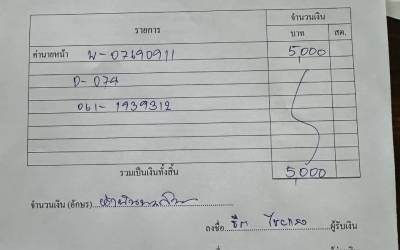 รายการ จำนวนเงิน
บาท สต.
ค่านายหน้า W-07690911 5,000
D-074
061-1939312
รวมเป็นเงินทั้งสิ้น 5,000
จำนวนเงิน (อักษร) ห้าพันบาทถ้วน
ลงชื่อ ผู้รับเงิน